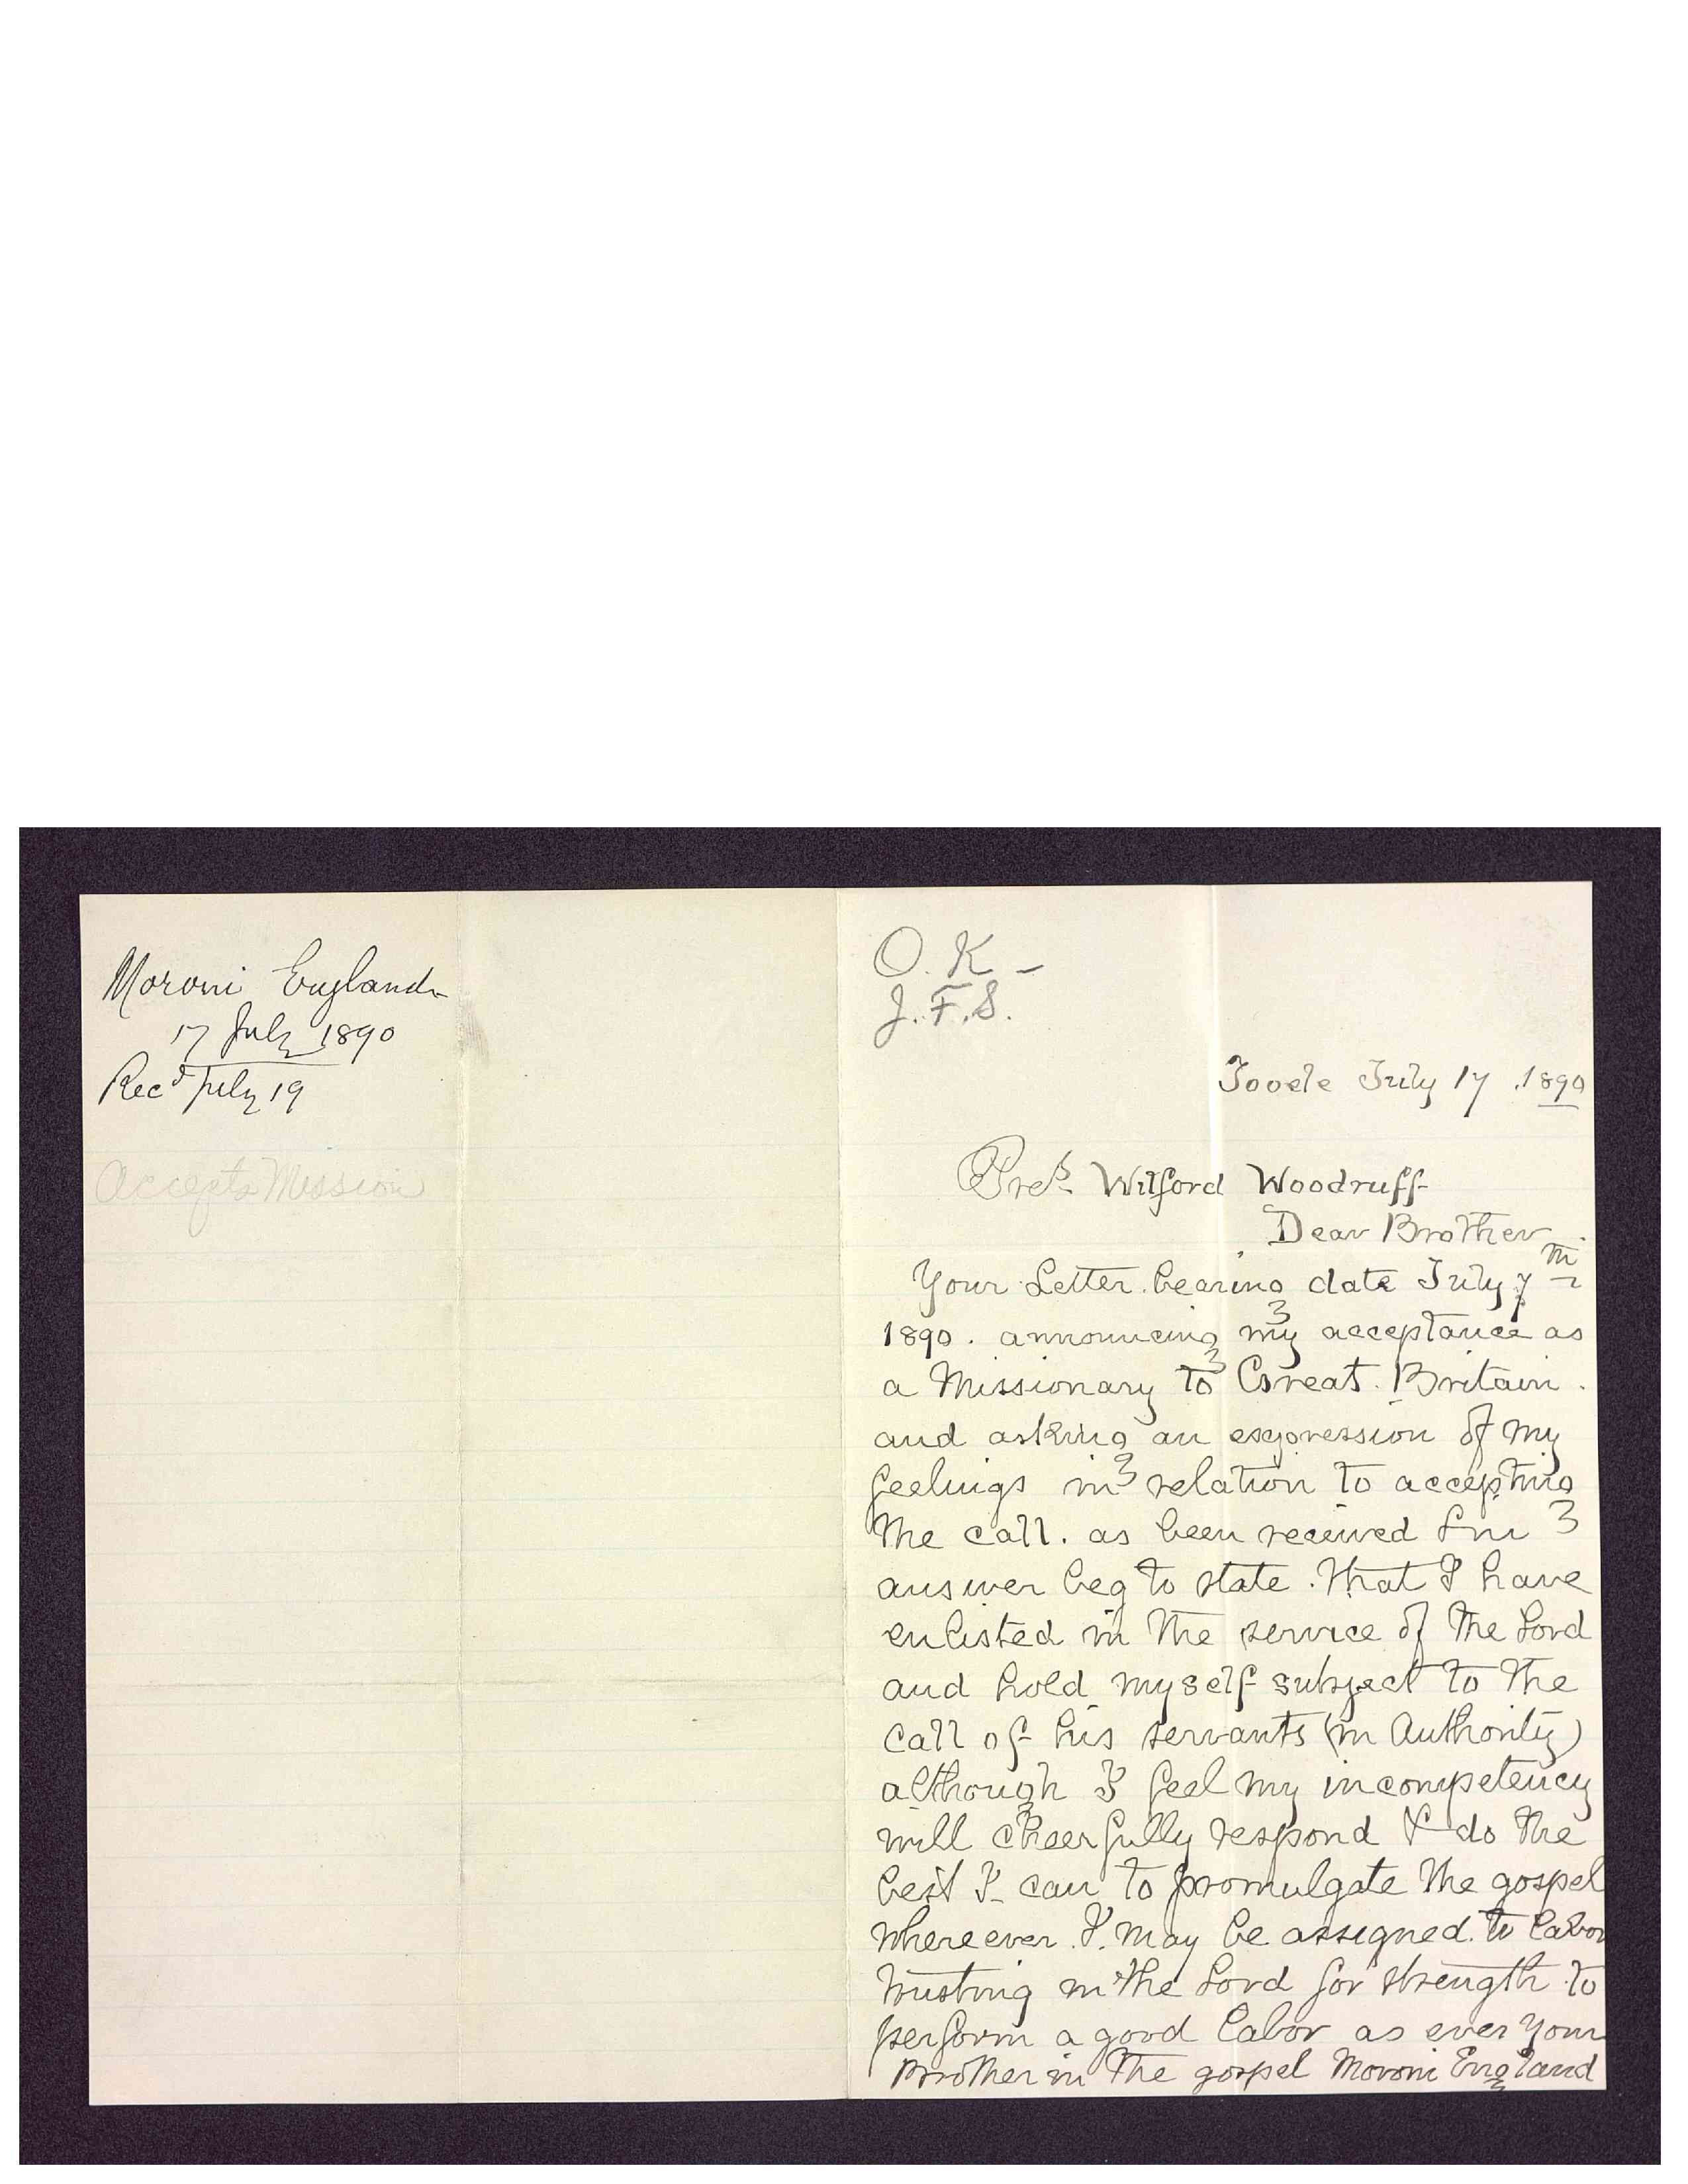 Moroni England
17 July 1890
Recd July 19
Accepts Mission
O. K –
J. F. S.
Tooele July 17 . 1890
Pres. Wilford Woodruff
Dear Brother
Your Letter. bearing date July 7th
1890 . announcing my acceptance as
a Missionary to Great. Britain .
and asking an expression of my
feelings in relation to accepting
the call. as been received & in
answer beg to state . that I have
enlisted in the service of the Lord
and hold myself subject to the
call of his servants (in Authority)
although I feel my incompetency
will cheerfully respond & do the
best I can to promulgate the gospel
where ever . I. may be assigned. to labor
trusting in the Lord for strength to
perform a good labor as ever your
Brother in the gospel Moroni England